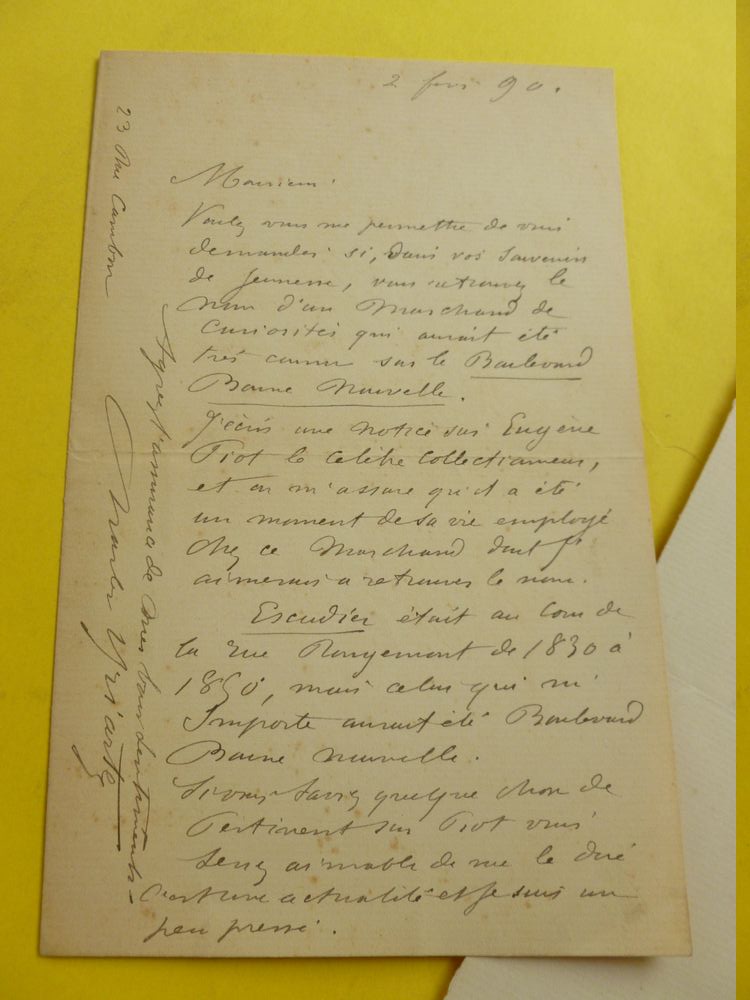 2 fevr 90.
Monsieur
Voulez vous me permettre de vous
demander si, dans vos souvenirs
de jeunesse, vous retrouvez le
nom d'un Marchand de
Curiosités qui aurait été
très connu sur le Boulevard
Bonne Nouvelle.
J'écris une notice sur Eugène
Piot le celèbre Collectionneur,
et on m'assure qu'il a été
un moment de sa vie employé
chez ce Marchand dont je
aimerais a retrouver le nom.
Escudier était au Coin de
la rue Rougemont de 1830 à
1850, mais celui qui m'
Importe aurait été Boulevard
Bonne nouvelle.
Si vous savez quelque chose de
Pertinent sur Piot vous
serez aimable de me le dire
C'est une actualité et je suis un
peu pressé.
Agréez l'assurance de mes bons sentiments
Charles Yriarte
23 Rue Cambon